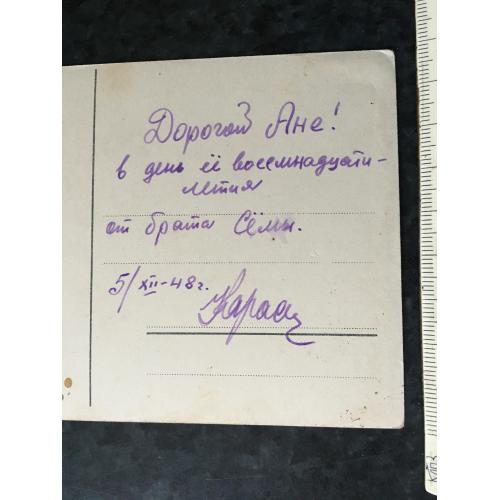 Дорогой Ане!
в день её восемнадцати-
летия
от брата Сёмы.
5/XII-48г.